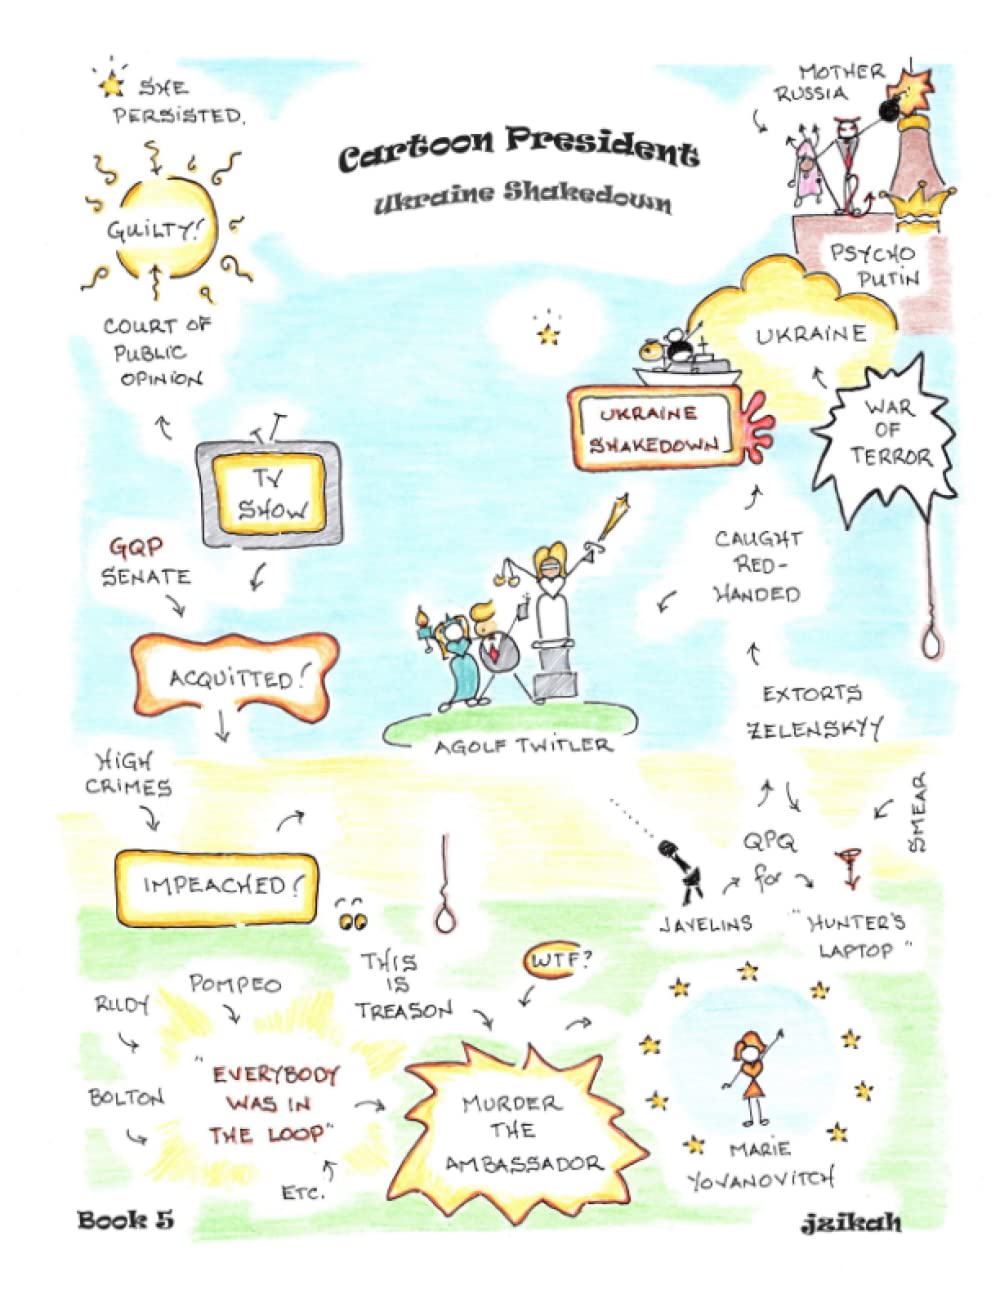 SHE
PERSISTED.
Cartoon President
Ukraine Shakedown
MOTHER
RUSSIA
GUILTY!
PSYCHO
PUTIN
COURT OF
PUBLIC
OPINION
UKRAINE
UKRAINE
SHAKEDOWN
WAR
OF
TERROR
TV
SHOW
GQP
SENATE
CAUGHT
RED-
HANDED
ACQUITTED!
EXTORTS
ZELENSKYY
AGOLF TWITLER
HIGH
CRIMES
SMEAR
IMPEACHED!
QPQ
for
JAVELINS
"HUNTER'S
LAPTOP"
THIS
IS
TREASON
WTF?
POMPEO
RUDY
BOLTON
"EVERYBODY
WAS IN
THE LOOP"
ETC.
MURDER
THE
AMBASSADOR
MARIE
YOVANOVITCH
Book 5
jzikah